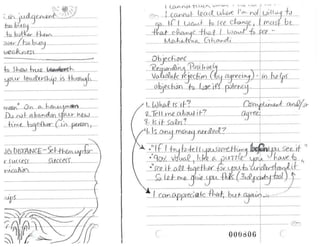 an judgement
to busy
to bother them
over/to busy
weakness
to show true
your leadership is through
man" On a honeymoon
Do not abandon your new
time together (in person,
LG DISTANCE - Set them up for
r success success
ups
I cannot lead where I'm not willing to
go. If I want to see change, I must be
that change that I want to see -
Mahatma Ghandi
Objections
Responding Positively
Validate rejection (by agreeing) - in helps
objection to lose its potency.
1. What is it? Compliment and/or
2. Tell me about it? agree
3. Is it sales?
4. Is any money needed?
• "If I try to tell you something before you see it"
• "90% visual, like a puzzle you have to
• see it all together for you to understand it
So let me give you this (3rd party tool)
I can appreciate that, but again...
000606